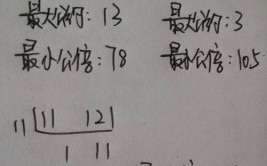 最大公约: 13 最大公约: 3
最小公倍: 78 最小公倍: 105
11 11 121
1 11